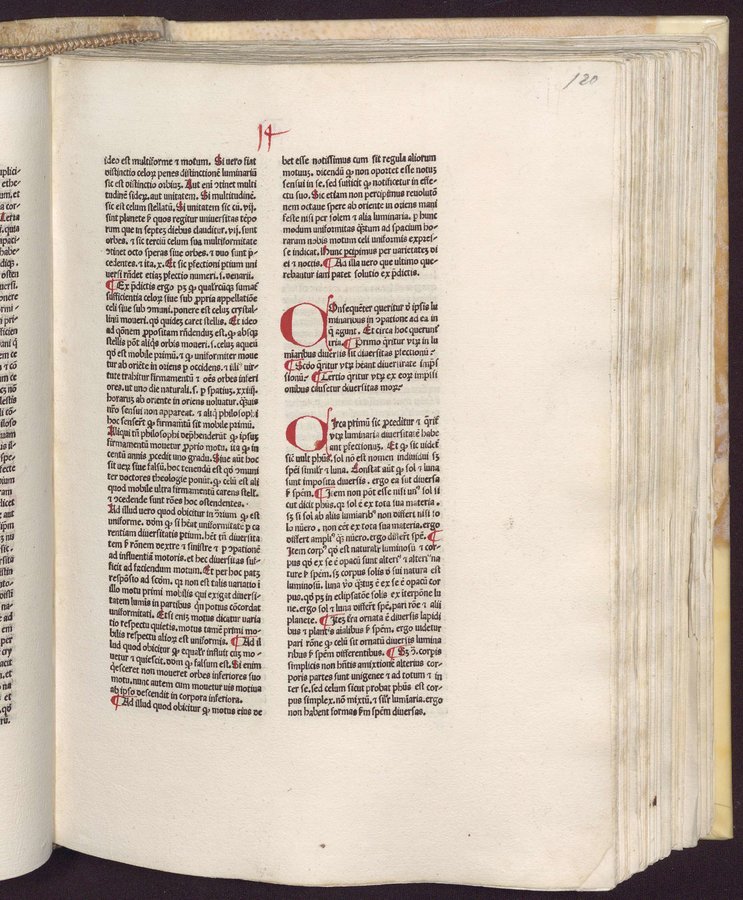 120
14
ideo est multiforme ⁊ motum. Si uero fiat
distinctio celoꝝ penes distinctionē luminariū
sic est distinctio orbiuꝫ. Aut eni ɔtinet multi
tudinē sideꝝ, aut unitatem. Si multitudinē.
sic est celum stellatū. Si unitatem sic cū. vij.
sint planete ꝑ quos regitur uniuersitas tēpo
rum que in septeꝫ diebus clauditur. vij. sunt
orbes. ⁊ sic terciū celum sua multiformitate
ɔtinet octo speras siue orbes. ⁊ duo sunt p̄
cedentes. ⁊ ita. x. Et sic ꝑfectioni ptium uni
uersi rñdet etiaꝫ ꝑfectio numeri. s. denarii.
¶ Ex p̄dictis ergo pꝫ ꝙ qualrcūqꝫ sumat̄
sufficientia celoꝝ siue sub ꝓpria appellatiōe
celi siue sub ɔmuni. ponere est celuꝫ crystal-
linū moueri. qd̓ quideꝫ caret stellis. Et ideo
ad qōnem ꝓpositam rñdendus est. ꝙ absqꝫ
stellis pōt aliqs orbis moueri. s. celuꝫ aqueū
qd̓ est mobile primū. ⁊ ꝙ uniformiter moue
tur ab oriēte in oriens ꝑ occidens. ⁊ illi uir-
tute trahitur firmamentū ⁊ oēs orbes inferi
ores. ut uno die naturali. s. ꝑ spatiuꝫ. xxiiij.
horaruꝫ ab oriente in oriens uoluatur. quis
nr̄o sensui non appareat. ⁊ aliqͥ philosophi
hoc senserīt ꝙ firmamētū sit mobile primū.
Aliqui tn̄ philosophi dep̄henderūt ꝙ ipsuꝫ
firmamentū mouetur ꝓprio motu. ita ꝙ in
centū annis ꝓcedit uno gradu. Siue aūt hoc
sit ueꝝ siue falsū. hoc tenendū est qd̓ ɔmuni
ter doctores theologie ponūt. ꝙ celū est ali
quod mobile ultra firmamentū carens stell'.
⁊ ɔcedende sunt rōnes hoc ostendentes.
Ad illud uero quod obicitur in ɔrium ꝙ est
uniforme. dōm ꝙ si hēat uniformitatē ꝑ ca
rentiam diuersitatis ptium. hēt tn̄ diuersita
tem ꝑ rōnem dextre ⁊ sinistre ⁊ ꝑ ɔpationē
ad influentiā motoris. et hec diuersitas suf-
ficit ad faciendum motum. Et per hoc patꝫ
respōsio ad scdm. qꝫ non est talis uariatio i
illo motu primi mobilis qui exigat diuersi-
tatem lumis in partibus qn̄ potius ɔcordat
uniformitati. Etsi eniꝫ motus dicatur uaria
tio respectu quietis. motus tamē primi mo-
bilis respectu alioꝝ est uniformis. ¶ Ad il
lud quod obicitur ꝙ equalr̄ instuit cuꝫ mo-
uetur ⁊ quiescit. dōm ꝙ falsum est. Si enim
q̓esceret non moueret orbes inferiores suo
motu. nunc autem cum mouetur uis motiua
ab ipso descendit in corpora inferiora.
¶ Ad illud quod obicitur ꝙ motus eius de
bet esse notissimus cum sit regula aliorum
motuuꝫ. dicendū ꝙ non oportet esse notuꝫ
sensui in se. sed sufficit ꝙ notificetur in effe-
ctu suo. Sic etiam non percipimus reuolutō
nem octaue spere ab oriente in oriens mani
feste nisi per solem ⁊ alia luminaria. ꝑ hunc
modum uniformitas qͣtum ad spacium ho-
rarum nobis motum celi uniformis expres-
se indicat. Hunc ꝑcipimus per varietateꝫ di
ei ⁊ noctis. ¶ Ad illa uero que ultimo que-
rebantur iam patet solutio ex p̄dictis.
COnsequēter queritur d̓ ipsis lu
minaribus in ɔpatione ad ea in
qͥ agunt. Et circa hoc querunt̄
tria. ¶ Primo q̄ritur vtꝝ in lu
minaribus diuersis sit diuersitas ꝑfectionū.
¶ Scd̓o q̄ritur vtꝝ hēant diuersitatē impͥs
sionū. ¶ Tertio q̄ritur vtꝝ ex eoꝝ impssi
onibus causetur diuersitas moꝝ.
CIrca primū sic ꝓceditur ⁊ q̄rit̄
vtꝝ luminaria diuersitatē habe
ant ꝑfectionuꝫ. Et ꝙ sic uidet̄
sic uult phūs. sol nō est nomen indiuidui sꝫ
spēi simr̄ ⁊ luna. Constat aūt ꝙ sol ⁊ luna
sunt imposita diuersis. ergo ea sunt diuersa
ẜm spēm. ¶ Item non pōt esse nisi unꝰ sol si
cut dicit phūs. qꝫ sol ē ex tota sua materia.
sꝫ si sol ab aliis lumiaribꝰ non differt nisi so
lo nūero. non eēt ex tota sua materia. ergo
differt ampliꝰ qͣꝫ nūero. ergo differt spē. ¶
Item corpꝰ qd̓ est naturalr̄ luminosū ⁊ cor-
pus qd̓ ex se ē opacū sunt alteriꝰ ⁊ alteriꝰ na
ture ẜm spēm. sꝫ corpus solis d̓ sui natura est
luminosū. luna v̓o qͣtuꝫ ē ex se ē opacū cor
pus. qd̓ pꝫ in eclipsatōe solis ex iterpōne lu
ne. ergo sol ⁊ luna differūt spē. pari rōe ⁊ alii
planete. ¶ Iteꝫ terra ornata ē diuersis lapidi
bus ⁊ plantis aialibus ẜm spēm. ergo uidetur
pari rōne ꝙ celū sit ornatū diuersis lumina
ribus ẜm spēm differentibus. ¶ Sꝫ ɔ. corpis
simplicis non hn̄tis amixtionē alterius cor-
poris partes sunt unigenee ⁊ ad totum ⁊ in
ter se. sed celum sicut probat phūs est cor-
pus simplex. nō mixtū. ⁊ silr̄ lumiaria. ergo
non habent formas ẜm spēm diuersas.